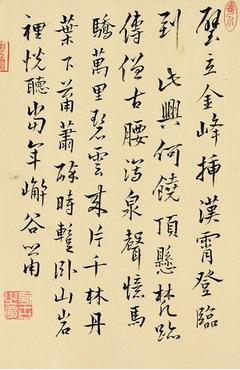 壁立金峰插漢霄登臨
到此興何饒頂懸梵跡
傳僧古腰瀉泉聲憶馬
驕萬里碧雲来片片千林丹
葉下蕭蕭醉時蹔卧山岩
裡恍聽當年嶰谷簫